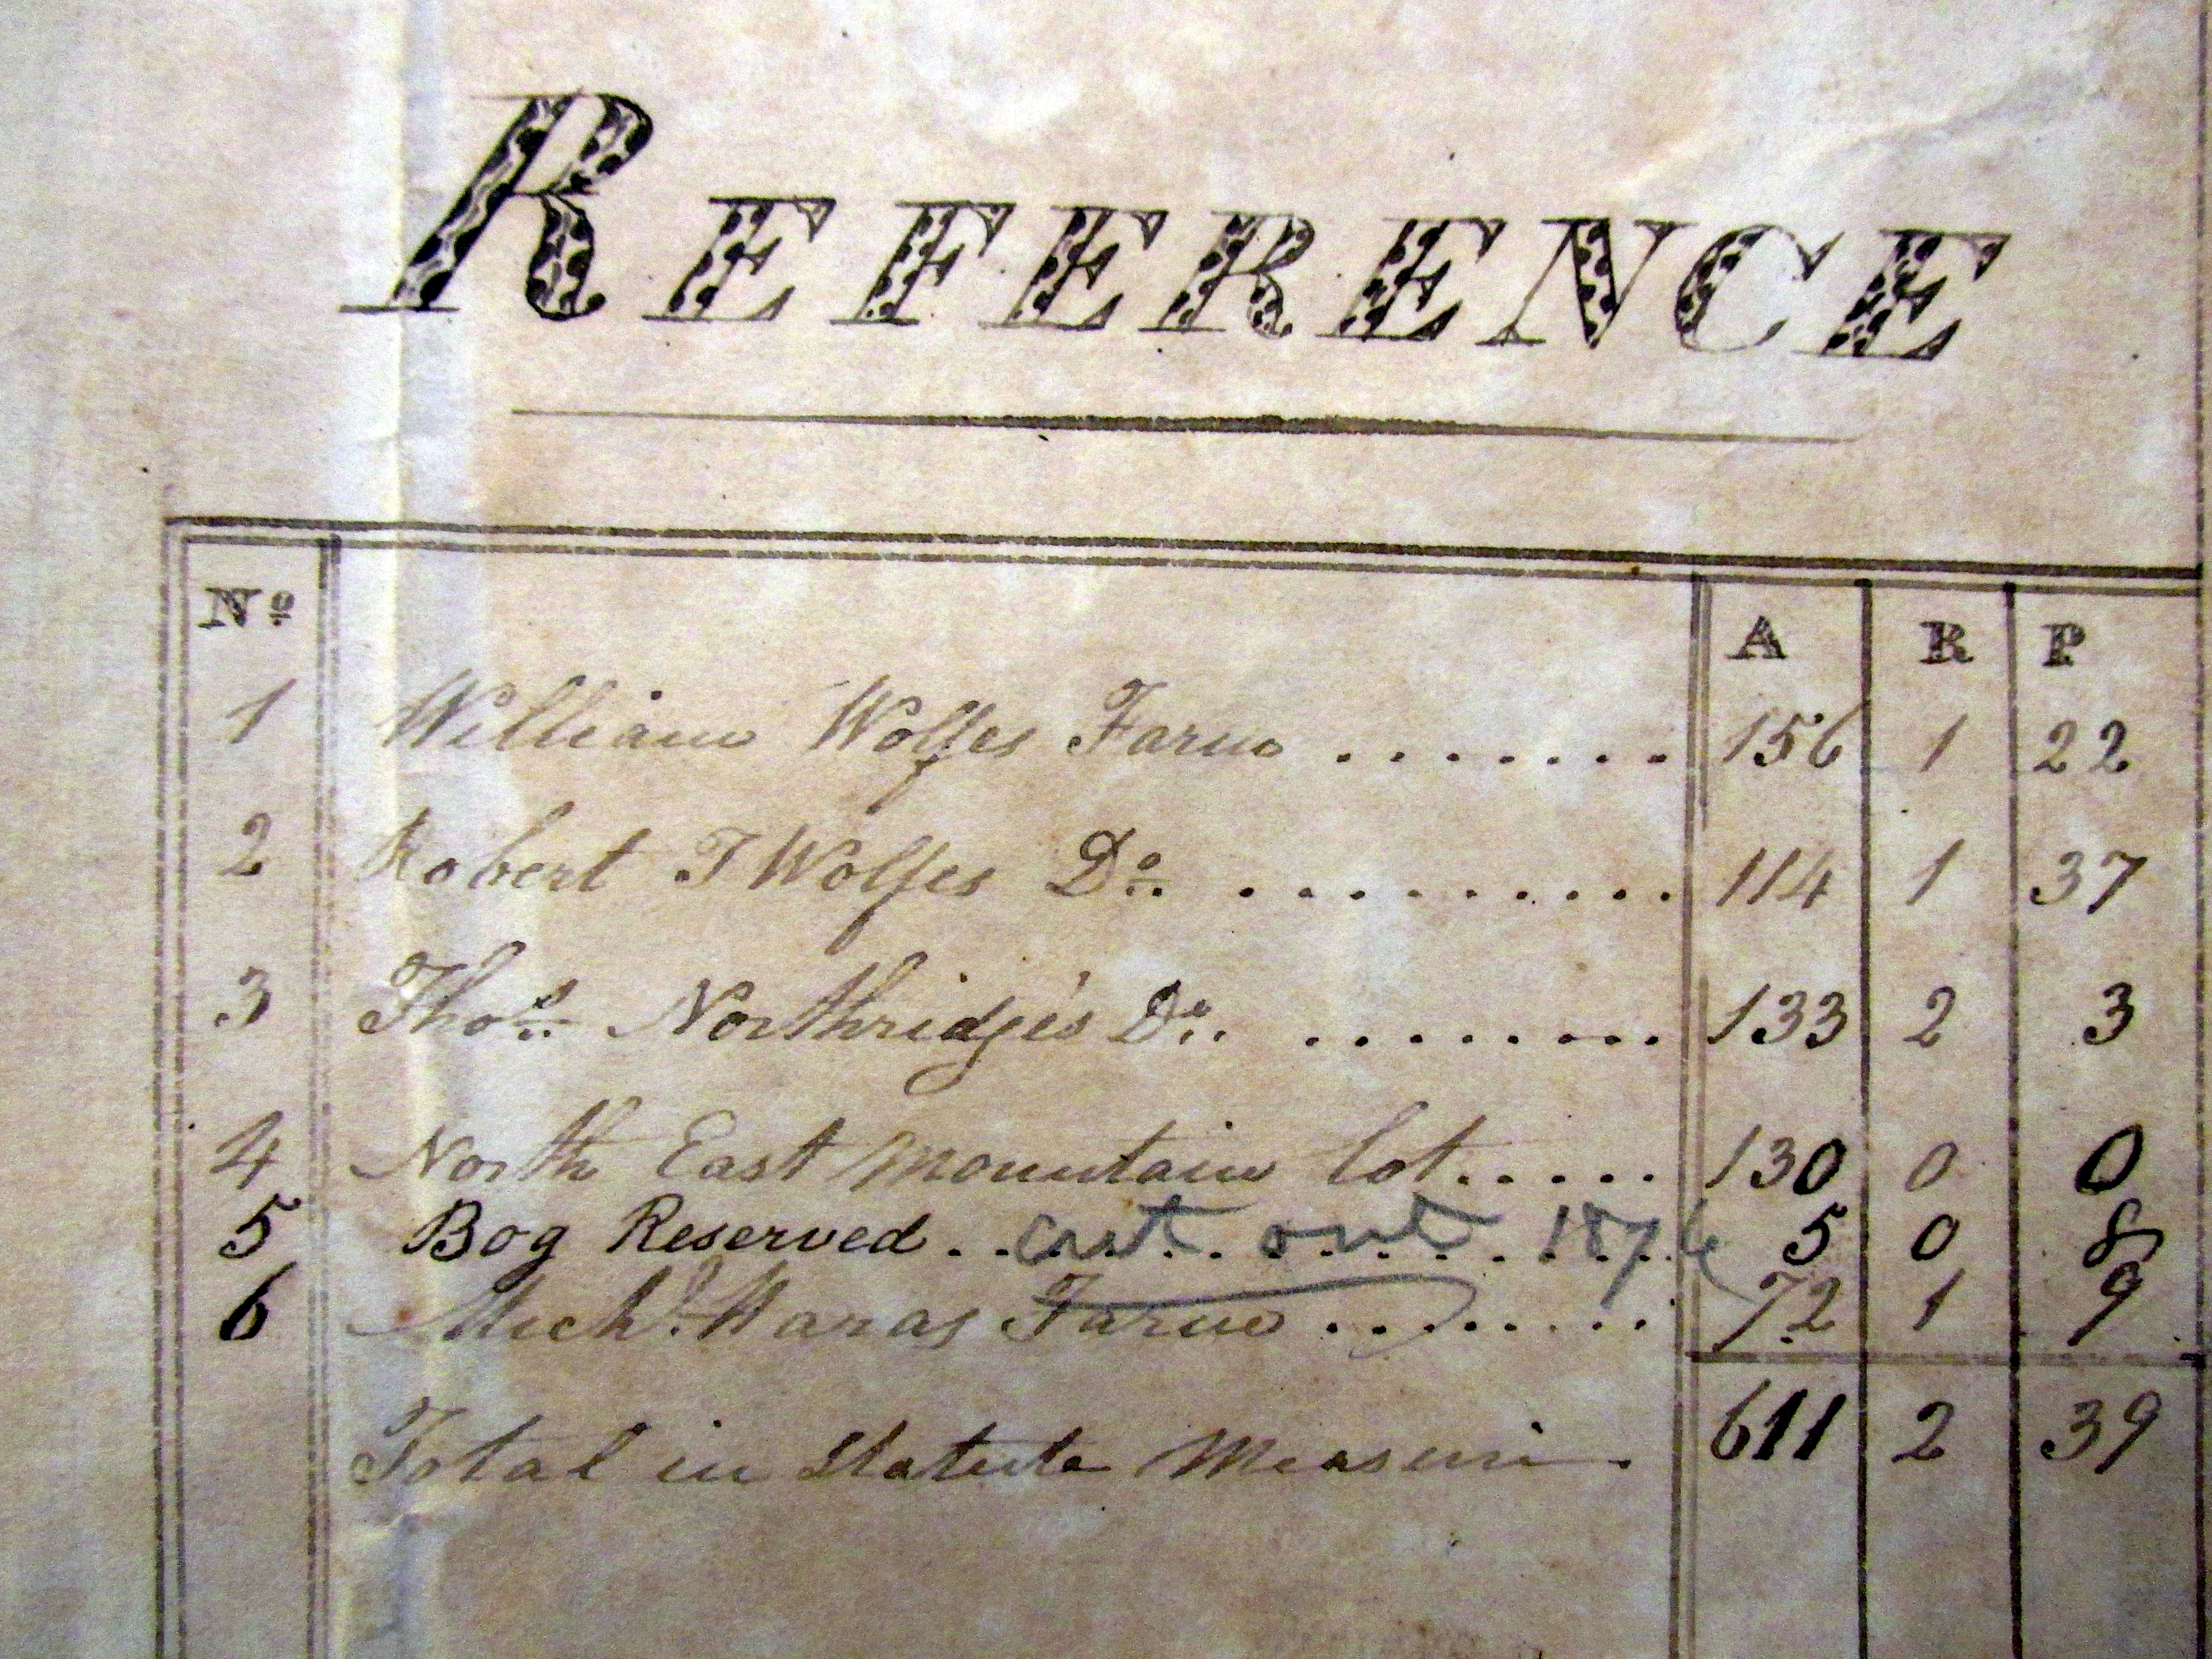 REFERENCE
No A R P
1 William Wolfes Farm ........ 156 1 22
2 Robert T Wolfes Do .......... 114 1 37
3 Thos Northridge's Do ......... 133 2 3
4 North East Mountain lot..... 130 0 0
5 Bog Reserved ........ cut out 1876 5 0 8
6 Michl Maras Farm ......... 72 1 9
Total in Statute Measure. 611 2 39